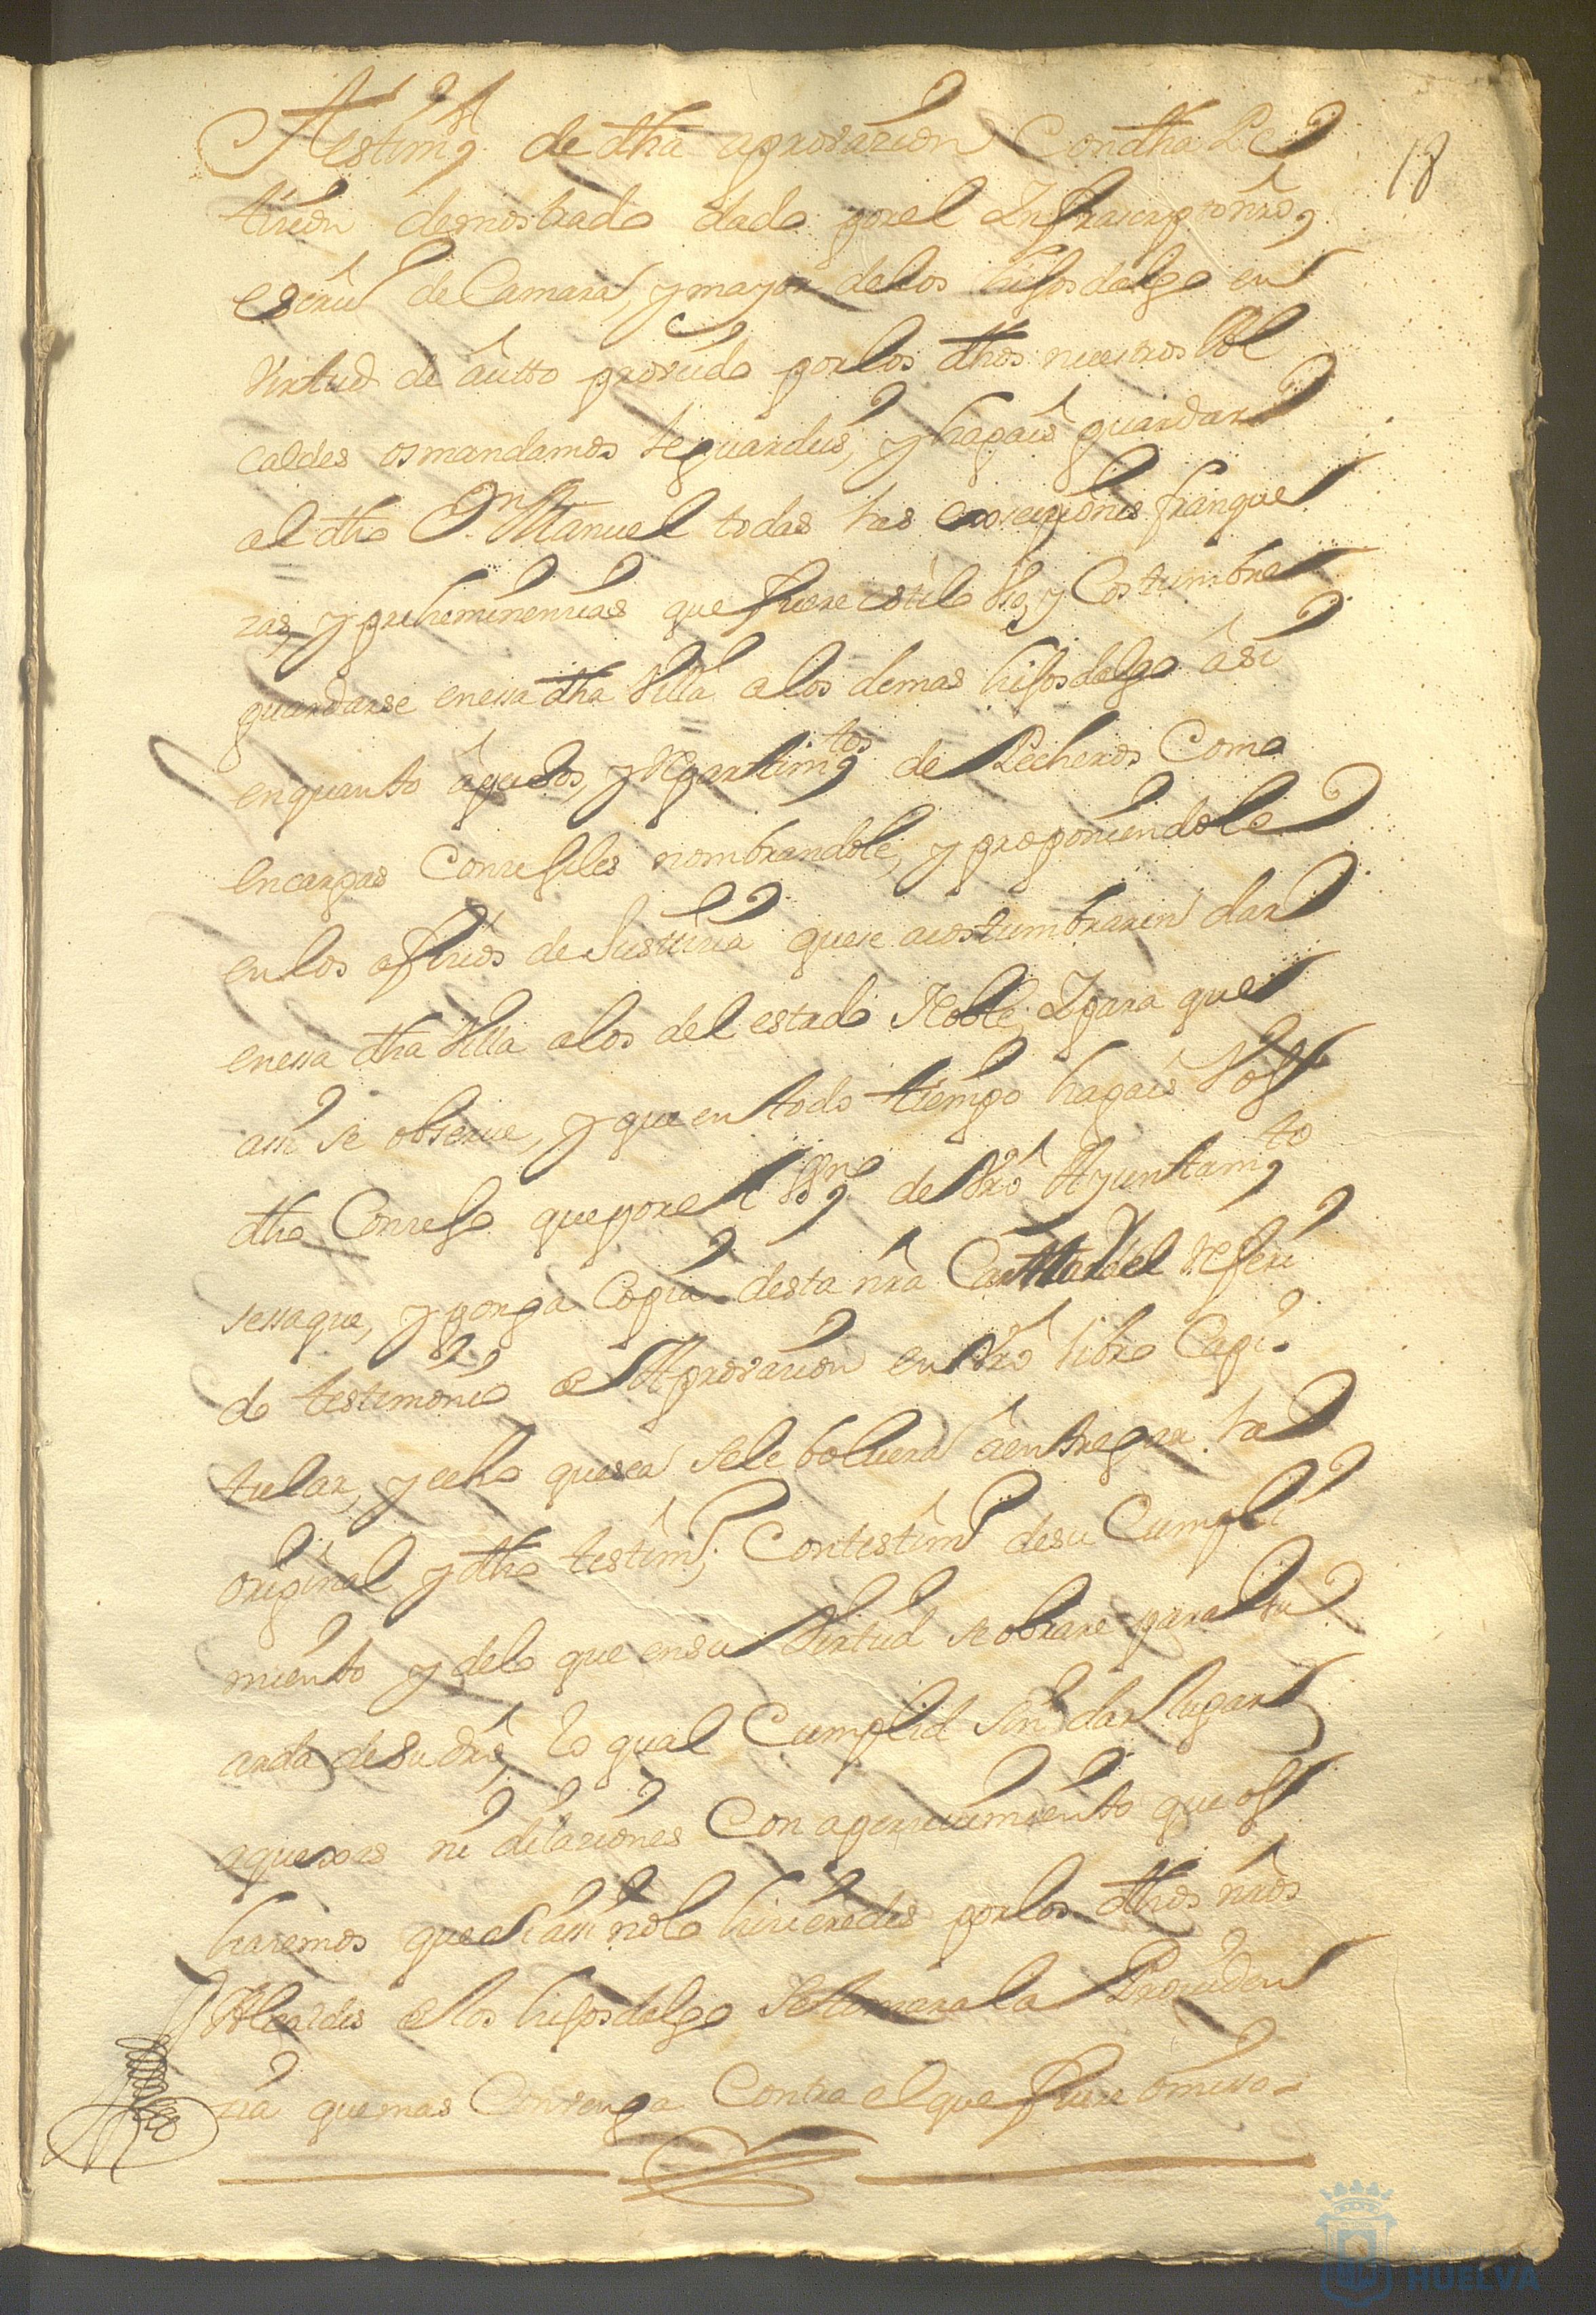 18
Testimº de dha aprovazion Con dha Pe
tizion demostrado dado por el Infraescripto nro
escrivº de Camara, y mayor de los hijosdalgo en
virtud de autto proveido por los dhos nuestros Al
caldes os mandamos le guardeis, y hagais guardar
al dho Dn. Manuel todas las exsempziones franque
zas, y preheminenzias que fuere estilo Vso, y Costumbre
guardarse en essa dha Villa a los demas hijosdalgo asi
en quanto a pechos, y Repartimtos de Pecheros Como
en cargas Conzejiles nombrandole, y proponiendole
en los ofizios de Justizia que se acostumbraren dar
en essa dha Villa a los del estado Noble, I para que
assi se observe, y que en todo tiempo hagais Vos
dho Conzejo que por el Essno de vro Ayuntamto
se saque, y ponga Copia desta nra Carttardel Referi
do testimonio e Aprovazion en vro libro Capi
tular, y echo que sea se le bolvera a entregar la
original y dho testimº, Con testimº de su Cumpli
miento y de lo que en su Virtud se obrare para
arda de su dro, lo qual Cumplid sin dar lugar
a quexas ni dilaziones Con aperzivimiento que os
haremos que si assi no lo hizieredes por los dhos nros
Alcaldes e los hijosdalgo se ttomara la Providen
zia que mas Convenga Contra el que fuere omisso
HUELVA